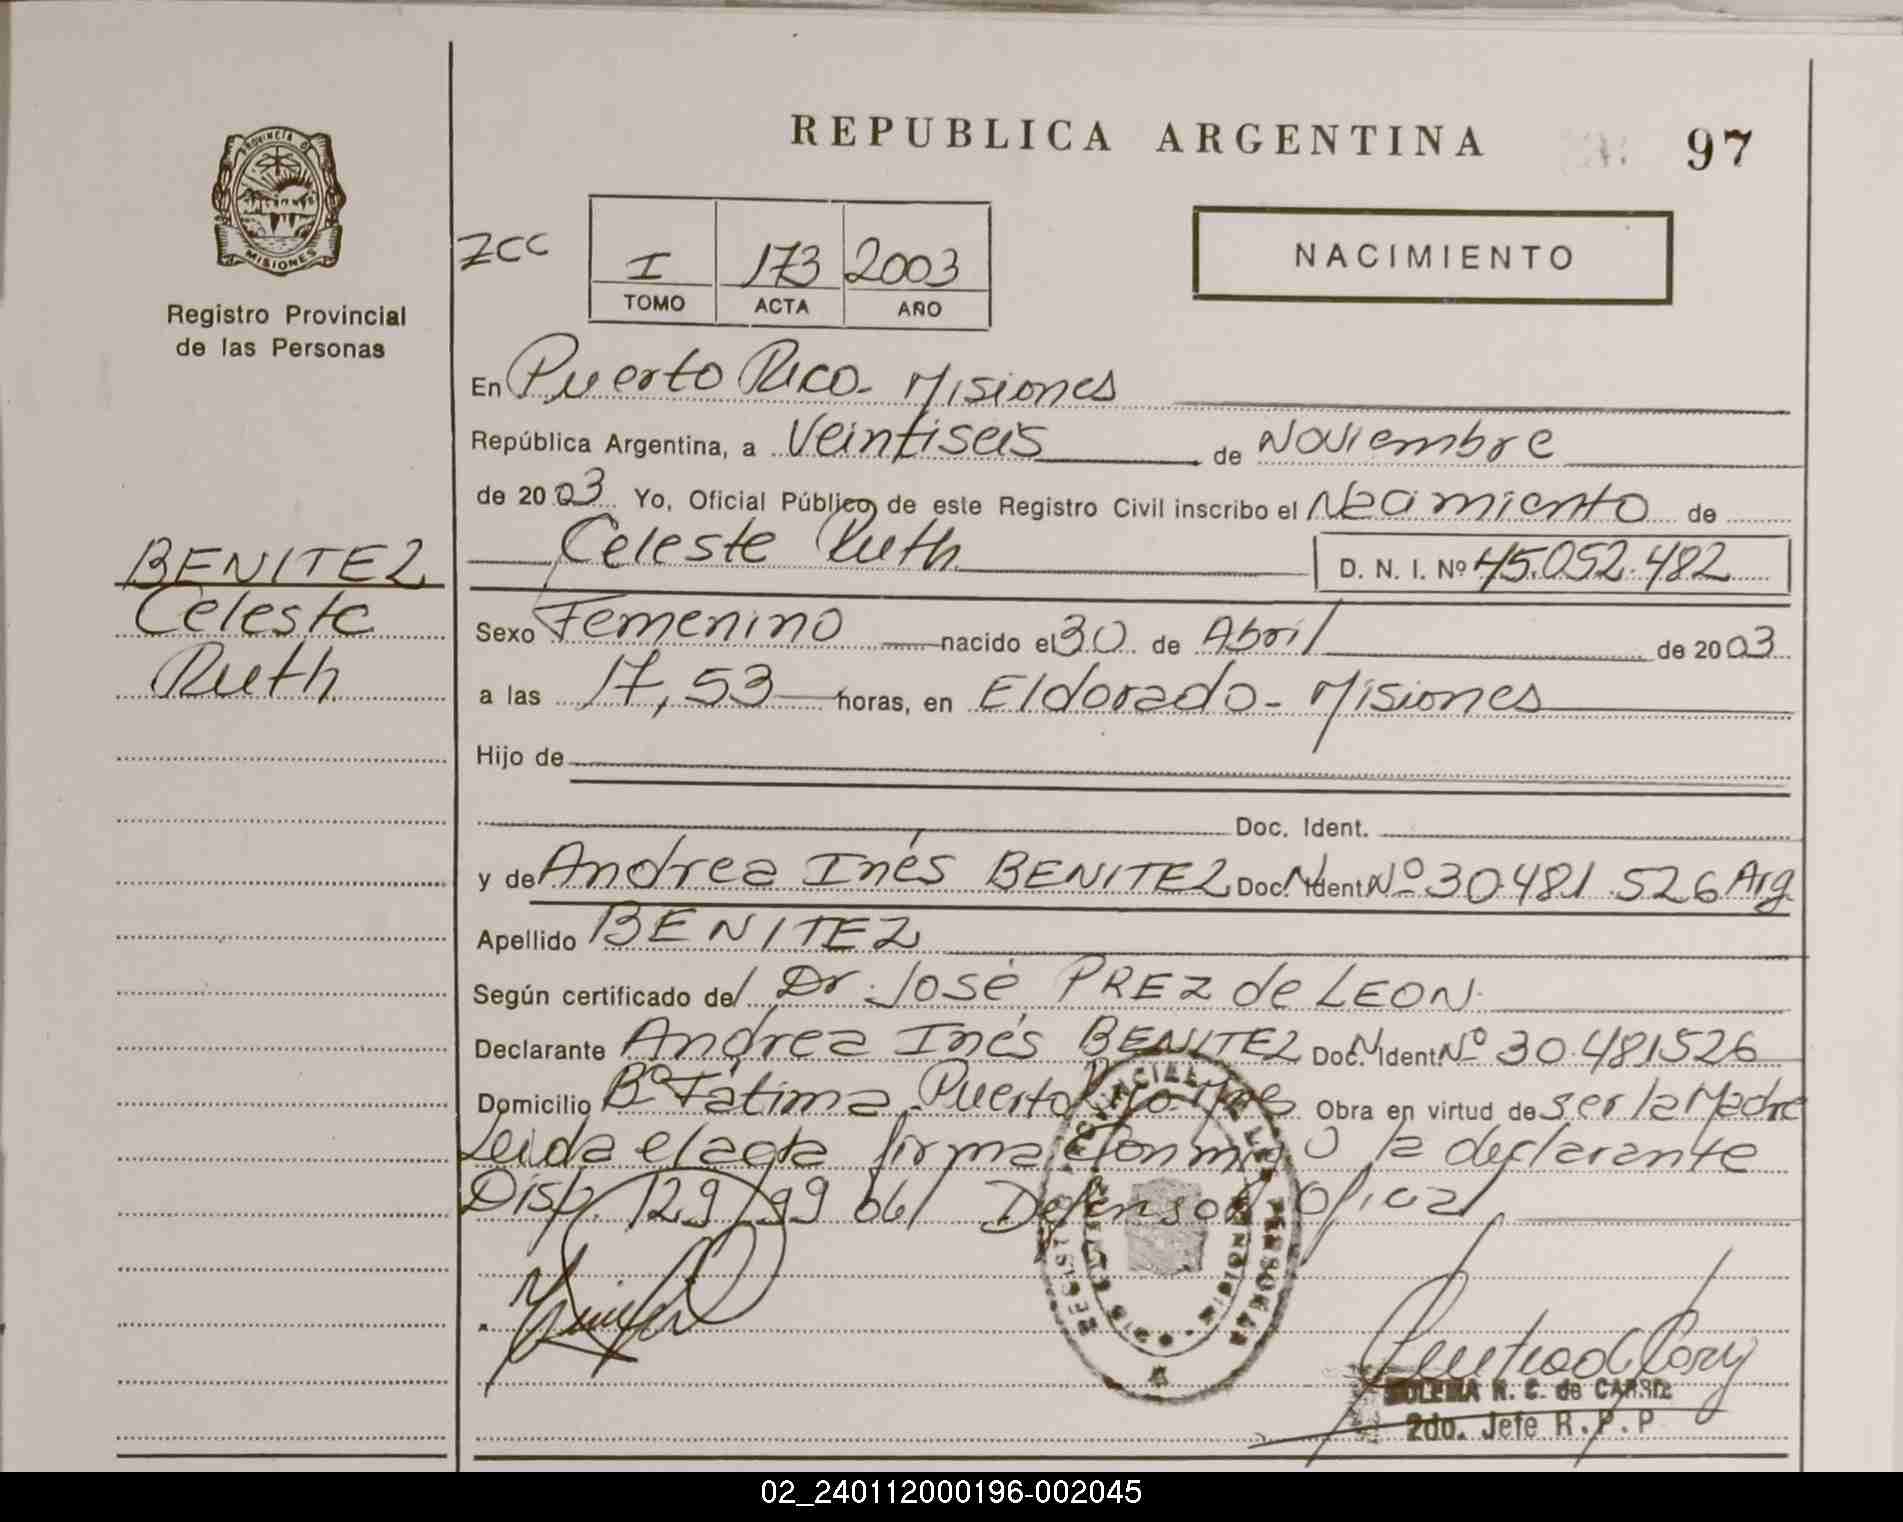 REPUBLICA ARGENTINA
97
PROVINCIA DE
MISIONES
Registro Provincial
de las Personas
ZCC
I 173 2003
TOMO ACTA AÑO
NACIMIENTO
En Puerto Rico - Misiones
República Argentina, a Veintiseis de Noviembre
de 2003 Yo, Oficial Público de este Registro Civil inscribo el Nacimiento de
Celeste Ruth D. N. I. Nº 45.052.482
BENITEZ
Celeste
Ruth
Sexo Femenino nacido el 30 de Abril de 2003
a las 17,53 horas, en Eldorado - Misiones
Hijo de
Doc. Ident.
y de Andrea Inés BENITEZ Doc. Ident. Nº 30.481.526 Arg
Apellido BENITEZ
Según certificado del Dr. José PREZ de LEON
Declarante Andrea Inés BENITEZ Doc. Ident. Nº 30.481526
Domicilio Bº Fátima, Puerto Rico Mnes Obra en virtud de ser la Madre
Leida el acta firma conmigo la declarante
Disp. 129/99 del Defensor Oficial
REGISTRO PROVINCIAL DE LAS PERSONAS
MISIONES
N. C. de
2do. Jefe R.P.P
02_240112000196-002045